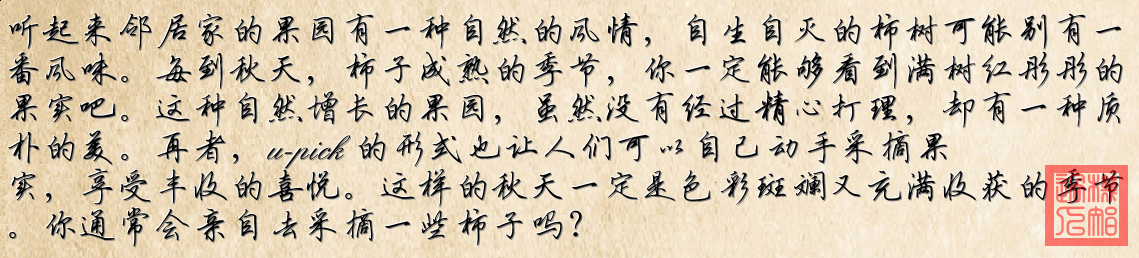 听起来邻居家的果园有一种自然的风情，自生自灭的柿树可能别有一
番风味。每到秋天，柿子成熟的季节，你一定能够看到满树红彤彤的
果实吧。这种自然增长的果园，虽然没有经过精心打理，却有一种质
朴的美。再者，u-pick 的形式也让人们可以自己动手采摘果
实，享受丰收的喜悦。这样的秋天一定是色彩斑斓又充满收获的季节
。你通常会亲自去采摘一些柿子吗？